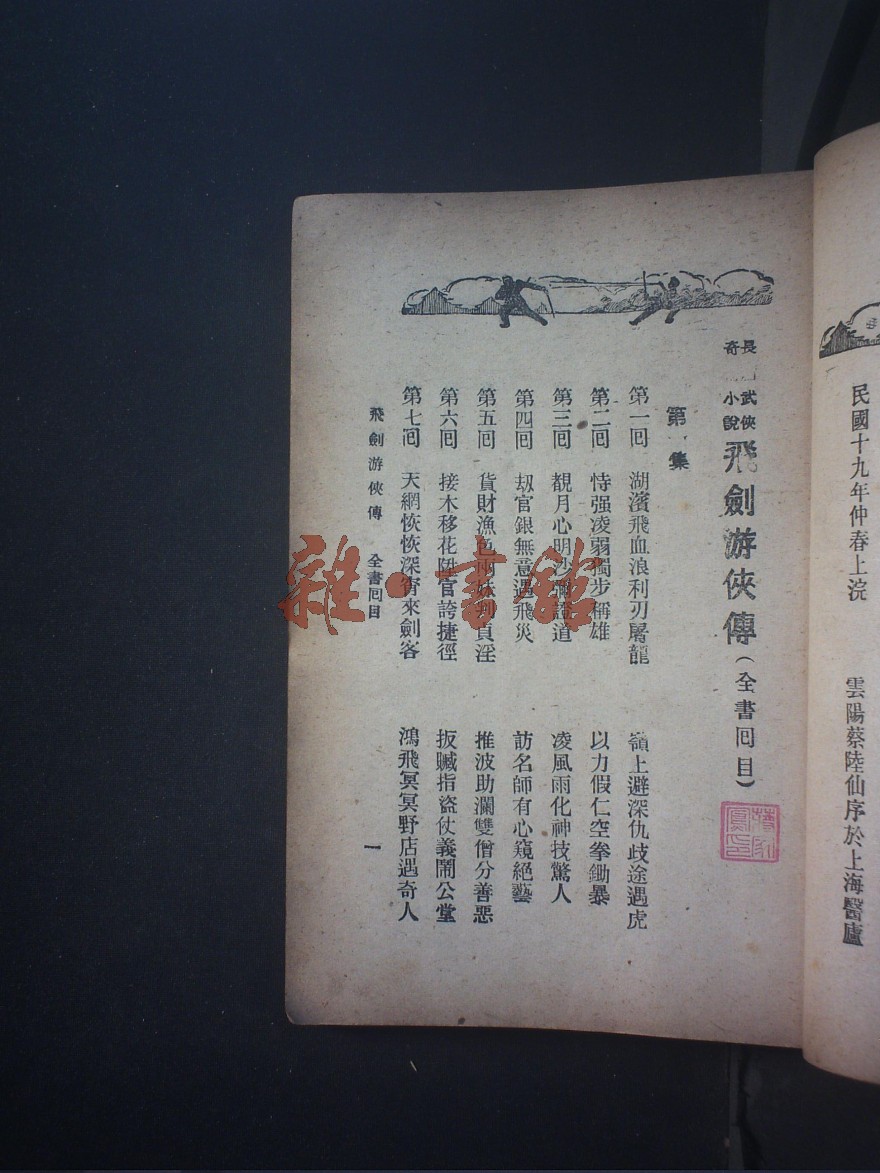 民國十九年仲春上浣　雲陽蔡陸仙序於上海醫廬
長　武俠
奇　小說
飛劍游俠傳（全書回目）
第一集
第一回　湖濱飛血浪利刃屠龍　嶺上避深仇歧途遇虎
第二回　恃强凌弱獨步稱雄　以力假仁空拳鋤暴
第三回　覩月心明沙彌證道　凌風雨化神技驚人
第四回　刼官銀無意遇飛災　訪名師有心窺絕藝
第五回　貨財漁色兩妖判貞淫　推波助瀾雙僧分善惡
第六回　接木移花陞官誇捷徑　扳贓指盜仗義鬧公堂
第七回　天網恢恢深宵來劍客　鴻飛冥冥野店遇奇人
飛劍游俠傳　全書回目　一
雜·書館